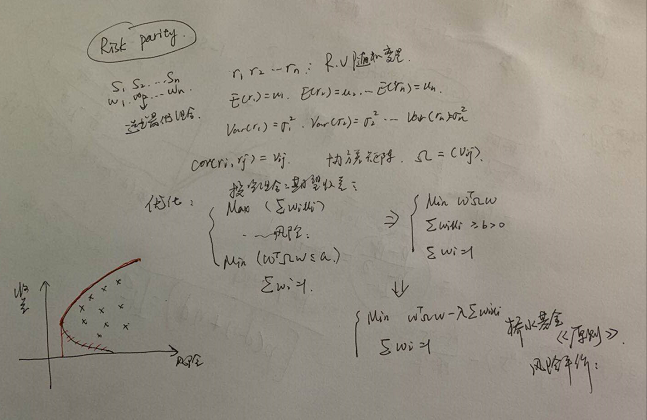 Risk parity.
S₁ S₂ ... Sₙ
w₁. w₂ ... wₙ
r₁ r₂ ... rₙ: R.V 随机变量
E(r₁)=u₁. E(r₂)=u₂. ... E(rₙ)=uₙ.
Var(r₁)=σ₁². Var(r₂)=σ₂² ... Var(rₙ)=σₙ²
cov(ri,rj)=Vij. 协方差矩阵. Ω=(Vij).
优化:
投资组合:期望收益:
Max (Σwiui)
风险:
Min (wᵀΩw≤a.)
Σwi=1.
⇒
Min wᵀΩw
Σwiui≥b>0
Σwi=1
⇓
Min wᵀΩw-λΣwiui
Σwi=1
桥水基金
《原则》.
风险平价:
收益
风险